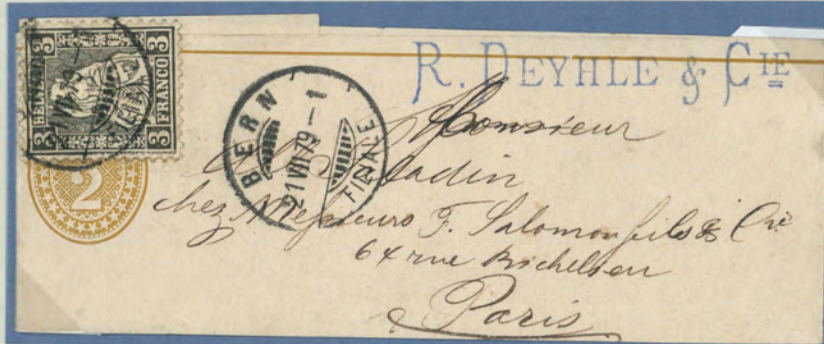 3 3
HELVETIA
FRANCO
3 3
2
R. DEYHLE & CIE
BERN
21 VII 79 – 1
FILIALE
Monsieur
chez Messieurs F. Salomon fils & Cie
64 rue Richelieu
Paris